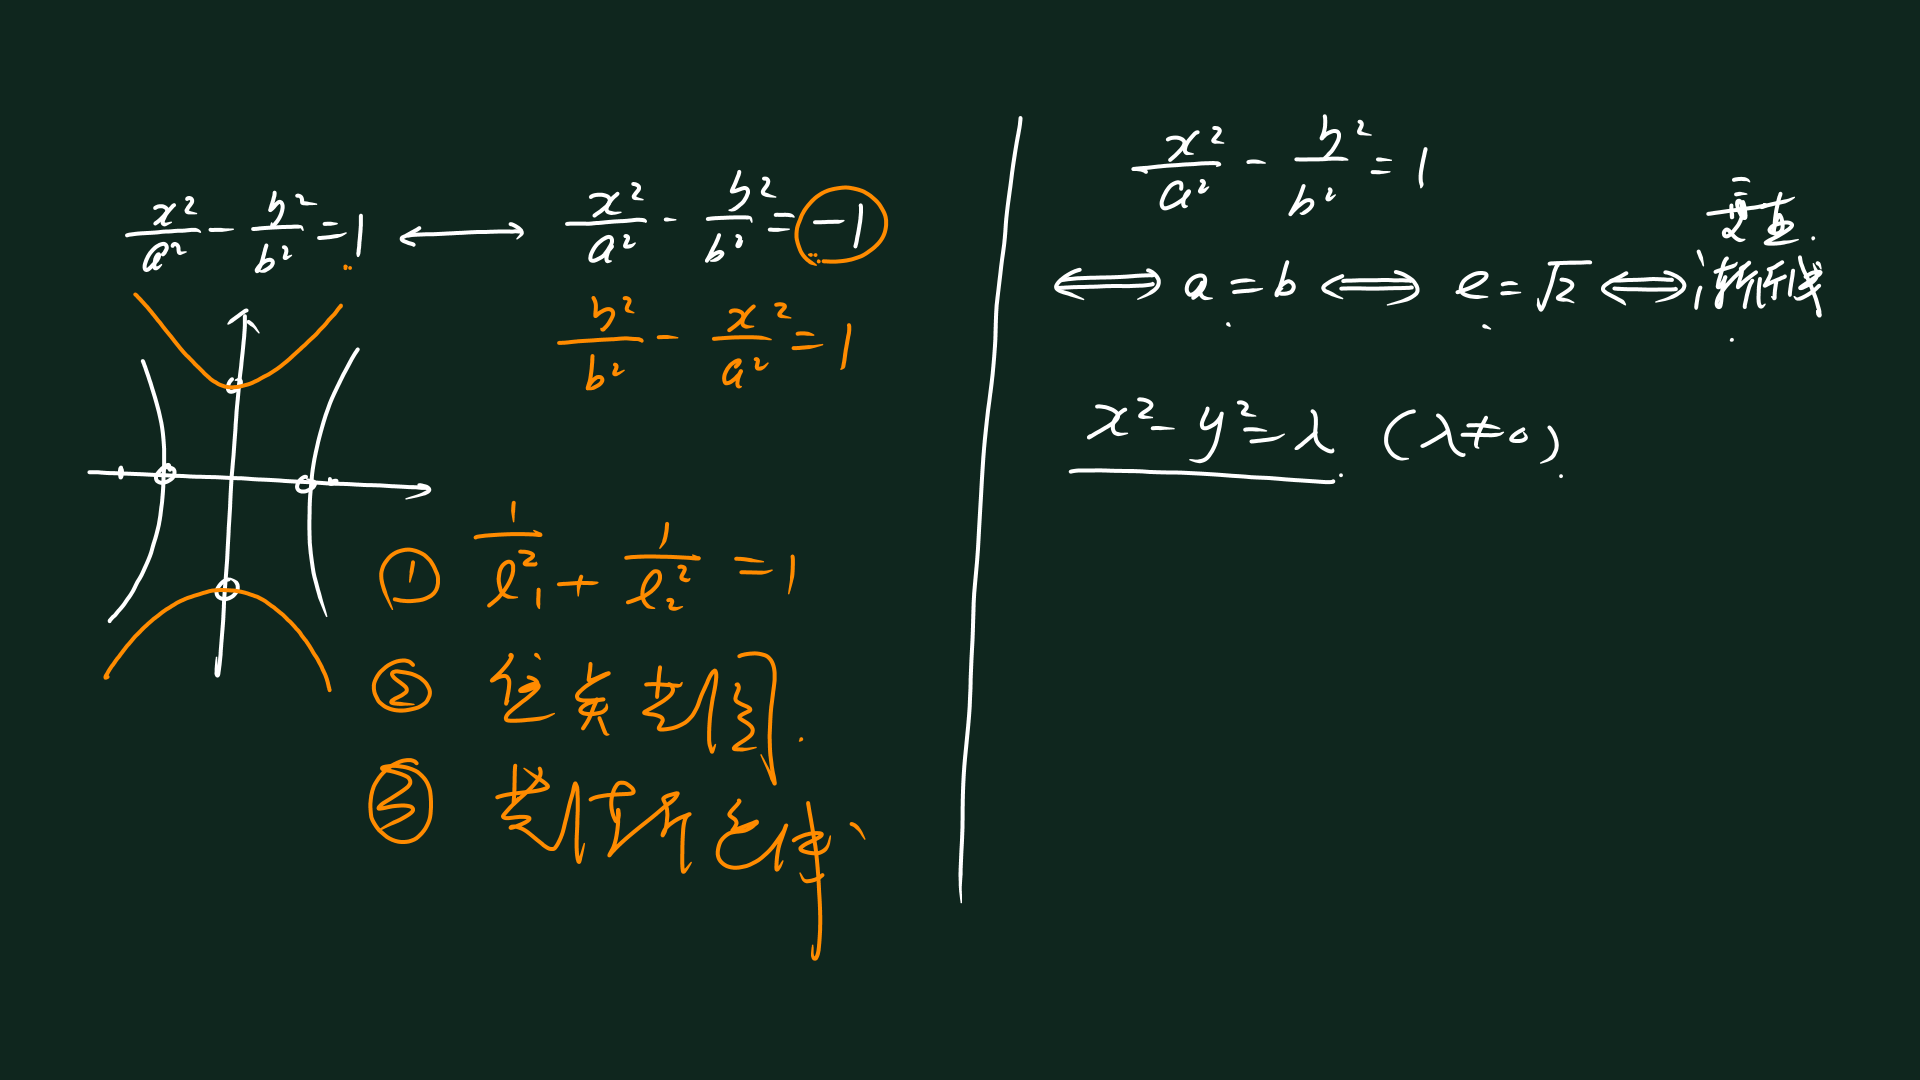 x²/a² - y²/b² = 1 ⟷ x²/a² - y²/b² = -1
y²/b² - x²/a² = 1
① 1/e₁² + 1/e₂² = 1
② 焦点共圆.
③ 共渐近线
x²/a² - y²/b² = 1
互相垂直.
⟺ a = b ⟺ e = √2 ⟺ 渐近线
x² - y² = λ (λ≠0).